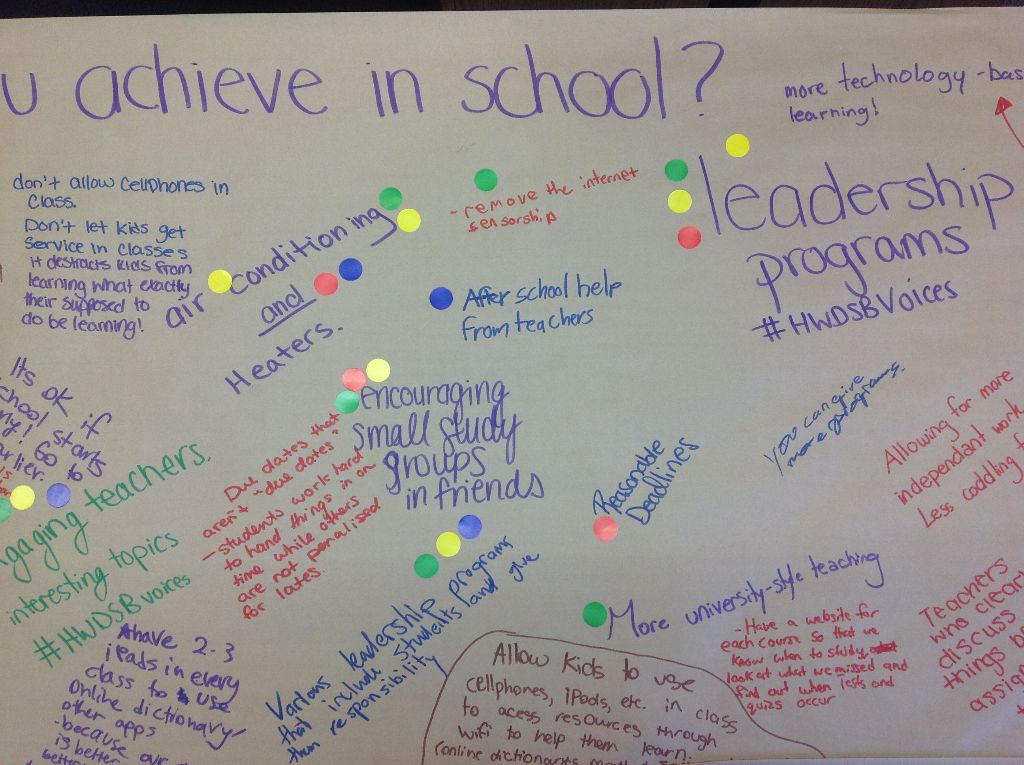 u achieve in school?
more technology - bas
learning!
don't allow cellphones in
class.
Don't let kids get
service in classes
it destracts kids from
learning what exactly
their supposed to
do be learning!
air conditioning
and
Heaters.
- remove the internet
sensorship
leadership
programs
#HWDSBVoices
After school help
From teachers
Its ok if
school starts
earlier. Go to
encouraging
small study
groups
in friends
Due dates that
aren't "due dates"
- students work hard
to hand things in on
time while others
are not penalised
for lates.
Reasonable
Deadlines
You can give
more programs.
Allowing for more
independant work
Less coddling
gaging teachers.
interesting topics
#HWDSBvoices
Various leadership programs
that include students and give
them responsibility
More university-style teaching
- Have a website for
each course so that we
know when to study,
look at what we missed and
find out when tests and
quizs occur
Teachers
who clear
discuss
things b
assig
have 2-3
ipads in every
class to use
Online dictionary/
other apps
- because our
is better
Allow kids to use
cellphones, iPods, etc. in class
to acess resources through
wifi to help them learn.
(online dictionarys